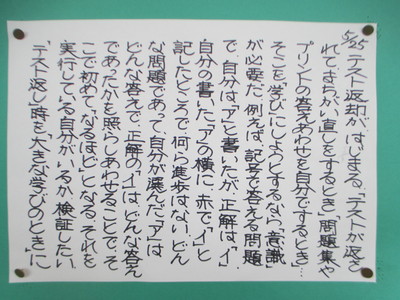 5/25 テスト返却が、はじまる。「テストが返さ
れてまちがい直しをするとき」「問題集や
プリントの答えあわせを自分でするとき」…
そこを「学び」にしようとするなら「意識」
が必要だ。例えば、記号で答える問題
で、自分は、「ア」と書いたが、正解は、「イ」
自分の書いた、「ア」の横に、赤で、「イ」と
記したところで、何ら進歩はない。どん
な問題であって、自分が選んだ、「ア」は
どんな答えで、正解の「イ」は、どんな答え
であったかを照らしあわせることで、そ
こで初めて、「なるほど」となる。それを
実行している自分がいるか、検証したい。
「テスト返し」時を、「大きな学びのとき」に